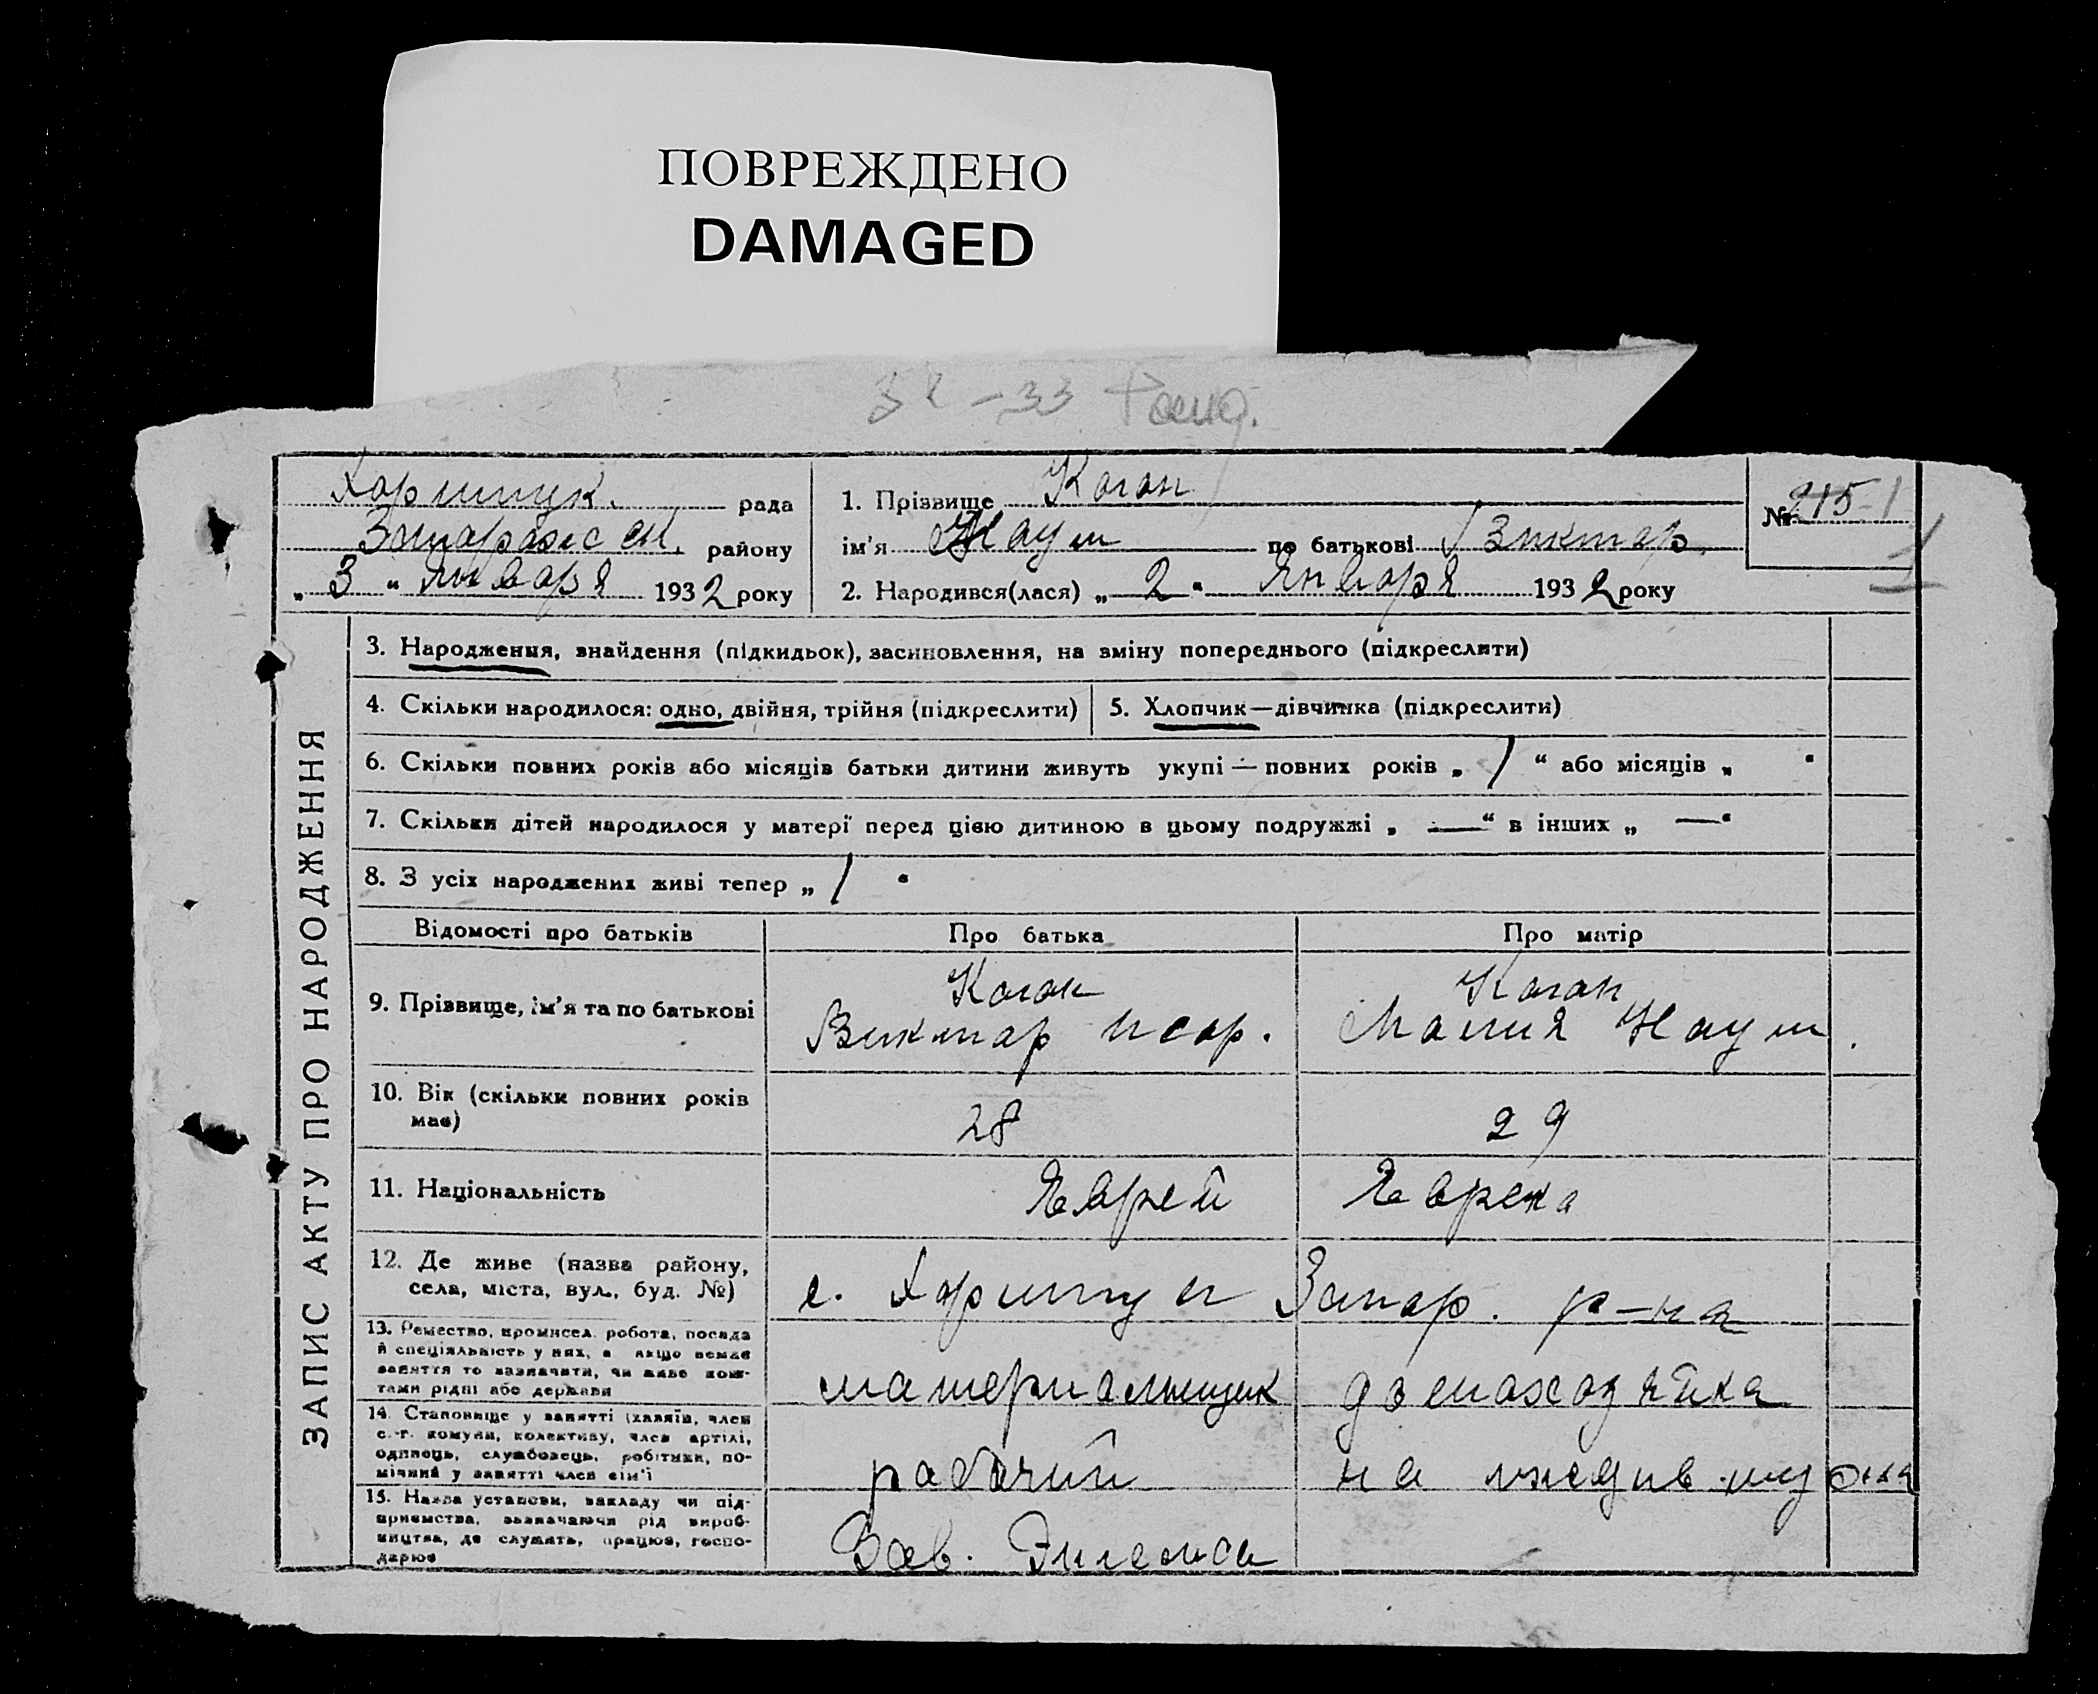 ПОВРЕЖДЕНО
DAMAGED
32 - 33
рада
района
"3" января 1932 року
1. Прізвище Коган
ім'я Наум по батькові Виктор.
2. Народився(лася) "2" января 1932 року
№ 215-1
1
ЗАПИС АКТУ ПРО НАРОДЖЕННЯ
3. Народження, знайдення (підкидьок), засиновлення, на зміну попереднього (підкреслити)
4. Скільки народилося: одно, двійня, трійня (підкреслити)
5. Хлопчик—дівчинка (підкреслити)
6. Скільки повних років або місяців батьки дитини живуть укупі — повних років „ 1 “ або місяців „ “
7. Скільки дітей народилося у матері перед цією дитиною в цьому подружжі „ — “ в інших „ — “
8. З усіх народжених живі тепер „ 1 “
Відомості про батьків
Про батька
Про матір
9. Прізвище, ім'я та по батькові
Коган
Виктор Исар.
Коган
Мания Наум.
10. Вік (скільки повних років має)
28
29
11. Національність
Еврей
Еврека
12. Де живе (назва району,
села, міста, вул., буд. №)
с. Запор. р-на
13. Ремество, промисел, робота, посада
й спеціяльність у них, а якщо немає
заняття то зазначити, чи живе кош-
тами рідні або держави
материальщик
домахозяйка
14. Становище у занятті (хазяїн, член
с.-г. комуни, колективу, член артілі,
одинець, службовець, робітник, по-
мічний у занятті член сім'ї
рабочий
на иждив. мужа
15. Назва установи, закладу чи під-
приємства, зазначаючи рід вироб-
ництва, де служить, працює, госпо-
дарює
Зав. Энгельса